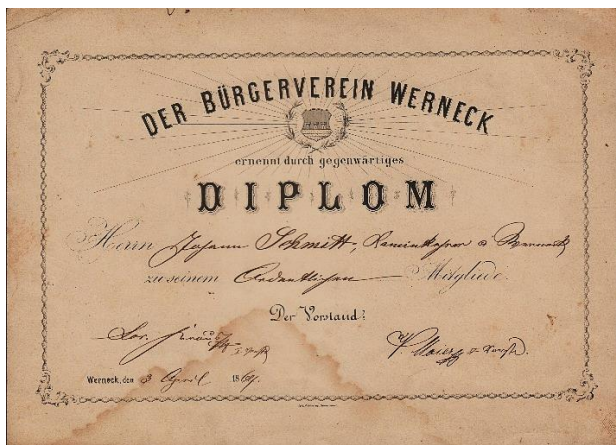 DER BÜRGERVEREIN WERNECK
ernennt durch gegenwärtiges
DIPLOM
Herrn Johann Schmitt, Kaminkehrer Werneck
zu seinem Ordentlichen Mitgliede.
Der Vorstand:
Maier
Werneck, den 3 April 1864